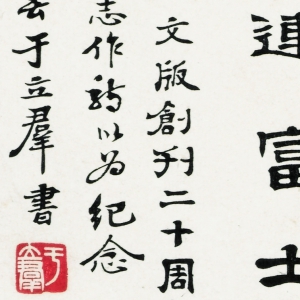 連富士
文版創刊二十周
志作詩以为紀念
于立羣書
于立羣